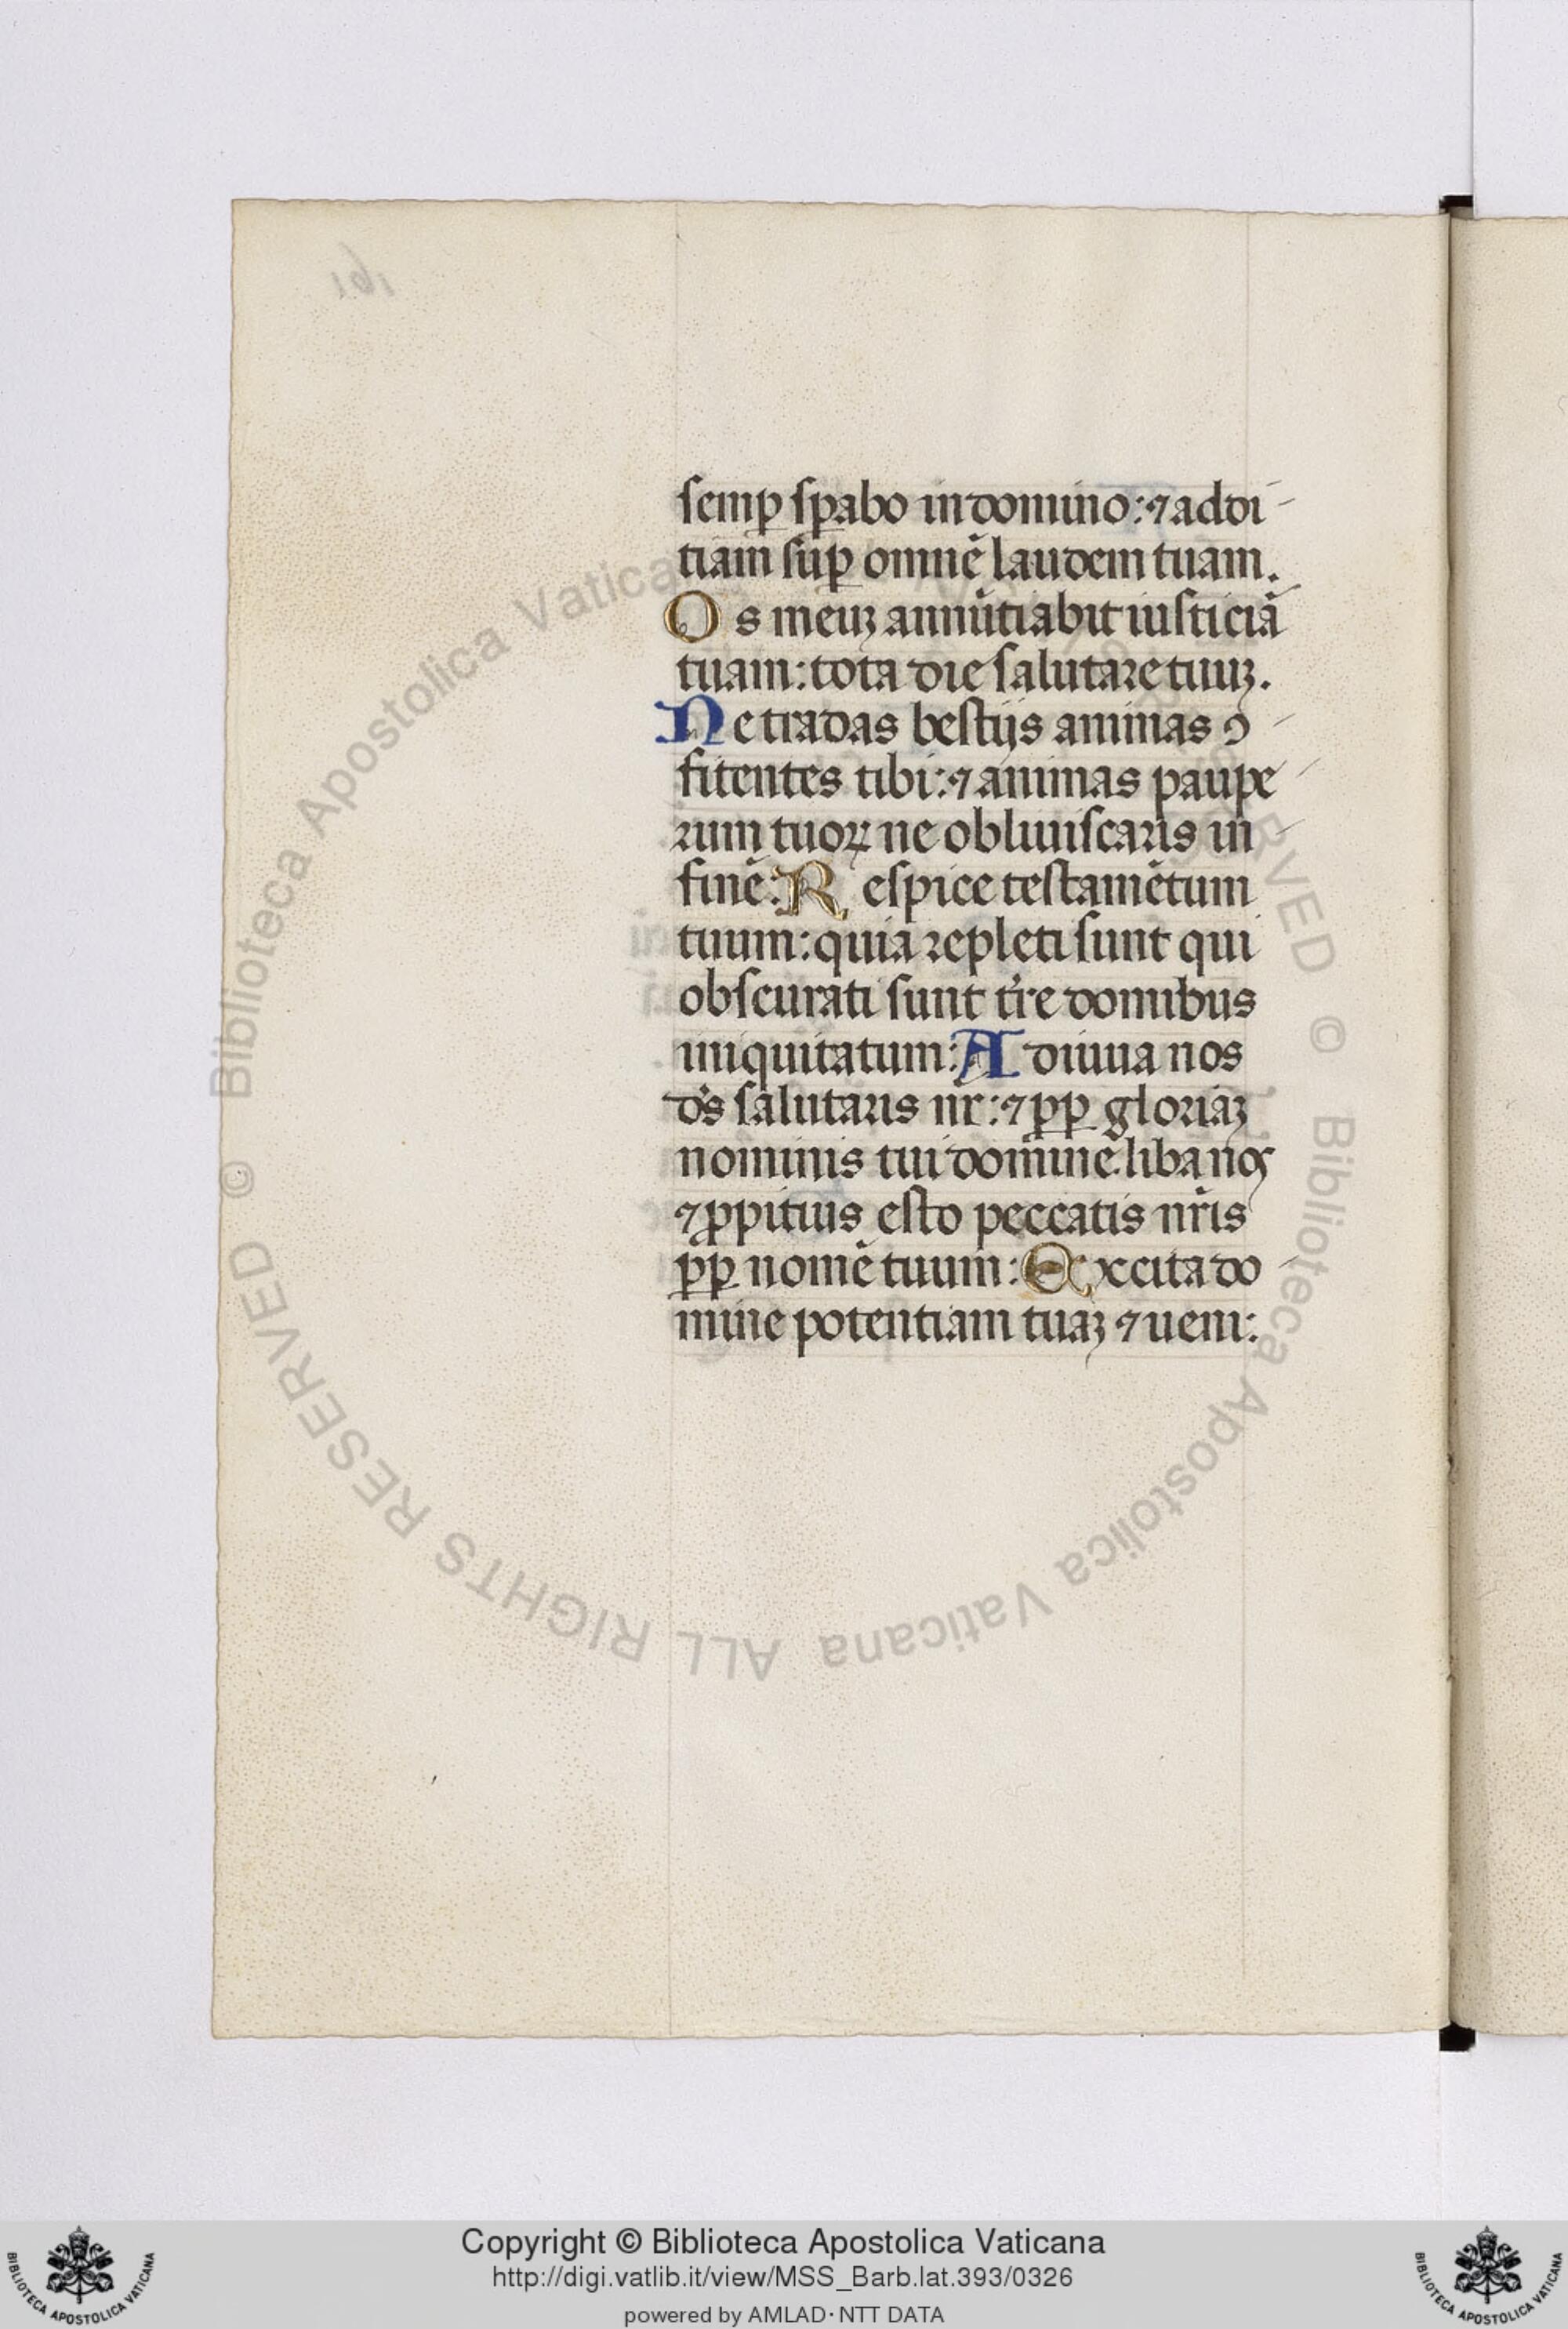 semꝑ sꝑabo in domino: ⁊ addi-
tiam suꝑ omnē laudem tuam.
Os meuꝫ annūtiabit iusticiā
tuam: tota die salutare tuuꝫ.
Ne tradas bestijs animas ꝯ-
fitentes tibi: ⁊ animas paupe-
rum tuoꝝ ne obliuiscaris in-
finē: Respice testamētum
tuum: quia repleti sunt qui
obscurati sunt tr̄e domibus
iniquitatum: Adiuua nos
dūs salutaris nr̄: ⁊ ꝑꝑ gloriaꝫ
nominis tui domine libanos
⁊ ꝓpitius esto peccatis nr̄is
ꝑꝑ nomē tuum: Excita do-
mine potentiam tuaꝫ ⁊ ueni:
Biblioteca Apostolica Vaticana
ALL RIGHTS RESERVED © Biblioteca Apostolica Vaticana
RESERVED © Biblioteca Apostolica Vaticana
Copyright © Biblioteca Apostolica Vaticana
http://digi.vatlib.it/view/MSS_Barb.lat.393/0326
powered by AMLAD·NTT DATA
BIBLIOTECA APOSTOLICA VATICANA
BIBLIOTECA APOSTOLICA VATICANA